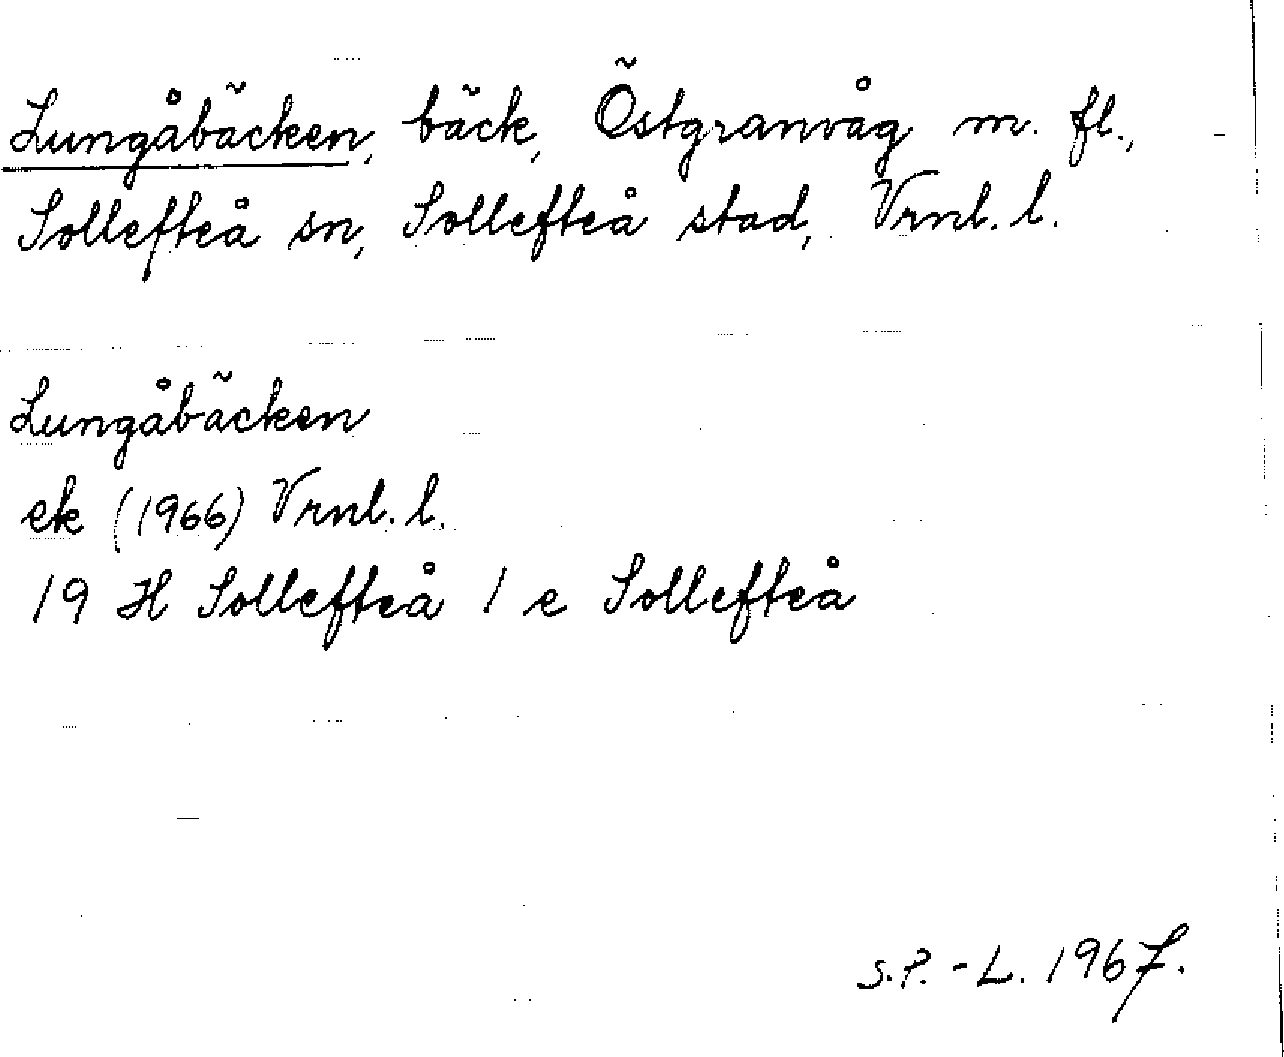 Lungåbäcken, bäck, Östgranvåg m. fl.,
Sollefteå sn, Sollefteå stad, Vrnl. l.
Lungåbäcken
ek (1966) Vrnl. l.
19 H Sollefteå 1 e Sollefteå
S.P.-L. 1967.